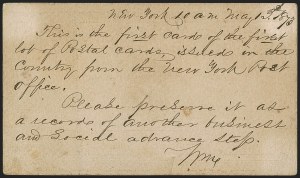 New York 10 am May 12th 1873
This is the first card of the first
lot of Postal cards, issued in the
Country from the New York Post
office.
Please preserve it as
a record of another business
and Social advance step.